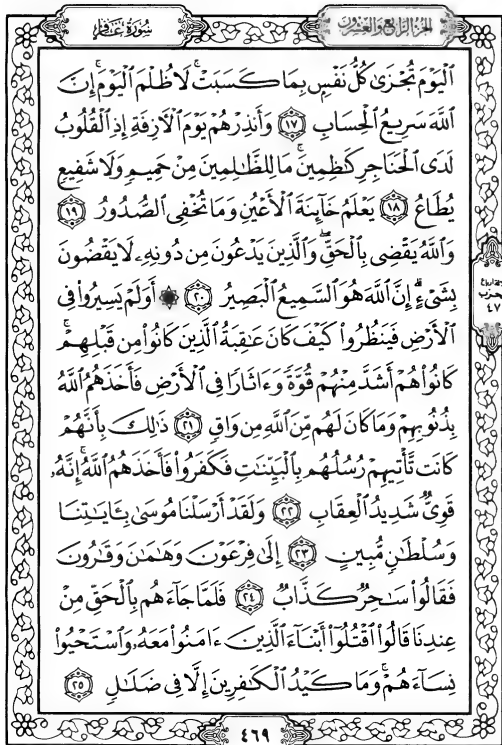 الجزء الرابع والعشرون
سورة غافر
ٱلْيَوْمَ تُجْزَىٰ كُلُّ نَفْسٍۭ بِمَا كَسَبَتْ ۚ لَا ظُلْمَ ٱلْيَوْمَ ۚ إِنَّ
ٱللَّهَ سَرِيعُ ٱلْحِسَابِ ١٧ وَأَنذِرْهُمْ يَوْمَ ٱلْءَازِفَةِ إِذِ ٱلْقُلُوبُ
لَدَى ٱلْحَنَاجِرِ كَٰظِمِينَ ۚ مَا لِلظَّٰلِمِينَ مِنْ حَمِيمٍ وَلَا شَفِيعٍ
يُطَاعُ ١٨ يَعْلَمُ خَآئِنَةَ ٱلْأَعْيُنِ وَمَا تُخْفِى ٱلصُّدُورُ ١٩
وَٱللَّهُ يَقْضِى بِٱلْحَقِّ ۖ وَٱلَّذِينَ يَدْعُونَ مِن دُونِهِۦ لَا يَقْضُونَ
بِشَىْءٍ ۗ إِنَّ ٱللَّهَ هُوَ ٱلسَّمِيعُ ٱلْبَصِيرُ ٢٠ ۞ أَوَلَمْ يَسِيرُوا۟ فِى
ٱلْأَرْضِ فَيَنظُرُوا۟ كَيْفَ كَانَ عَٰقِبَةُ ٱلَّذِينَ كَانُوا۟ مِن قَبْلِهِمْ ۚ
كَانُوا۟ هُمْ أَشَدَّ مِنْهُمْ قُوَّةً وَءَاثَارًا فِى ٱلْأَرْضِ فَأَخَذَهُمُ ٱللَّهُ
بِذُنُوبِهِمْ وَمَا كَانَ لَهُم مِّنَ ٱللَّهِ مِن وَاقٍ ٢١ ذَٰلِكَ بِأَنَّهُمْ
كَانَت تَّأْتِيهِمْ رُسُلُهُم بِٱلْبَيِّنَٰتِ فَكَفَرُوا۟ فَأَخَذَهُمُ ٱللَّهُ ۚ إِنَّهُۥ
قَوِىٌّ شَدِيدُ ٱلْعِقَابِ ٢٢ وَلَقَدْ أَرْسَلْنَا مُوسَىٰ بِـَٔايَٰتِنَا
وَسُلْطَٰنٍ مُّبِينٍ ٢٣ إِلَىٰ فِرْعَوْنَ وَهَٰمَٰنَ وَقَٰرُونَ
فَقَالُوا۟ سَٰحِرٌ كَذَّابٌ ٢٤ فَلَمَّا جَآءَهُم بِٱلْحَقِّ مِنْ
عِندِنَا قَالُوا۟ ٱقْتُلُوٓا۟ أَبْنَآءَ ٱلَّذِينَ ءَامَنُوا۟ مَعَهُۥ وَٱسْتَحْيُوا۟
نِسَآءَهُمْ ۚ وَمَا كَيْدُ ٱلْكَٰفِرِينَ إِلَّا فِى ضَلَٰلٍ ٢٥
٤٧
٤٦٩